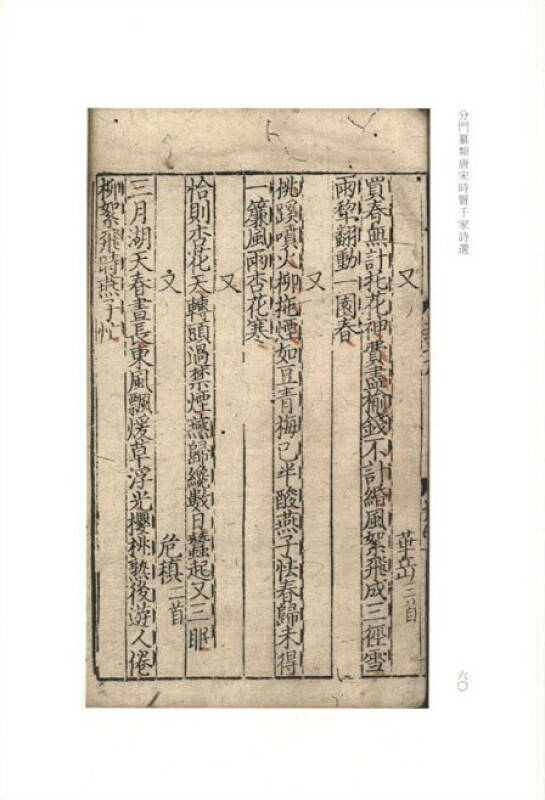 分門纂類唐宋時賢千家詩選
六〇
又 華岳三首
買春無計托花神費盡榆錢不計緡風絮飛成三徑雪
雨犂翻動一園春
又
桃蹊噴火柳拖煙如豆青梅已半酸燕子怯春歸未得
一簾風雨杏花寒
又
恰則杏花天轉頭過禁煙燕歸纔數日蠶起又三眠
又 危稹二首
三月湖天春晝長東風飄煖草浮光櫻桃熟後遊人倦
柳絮飛時燕子忙